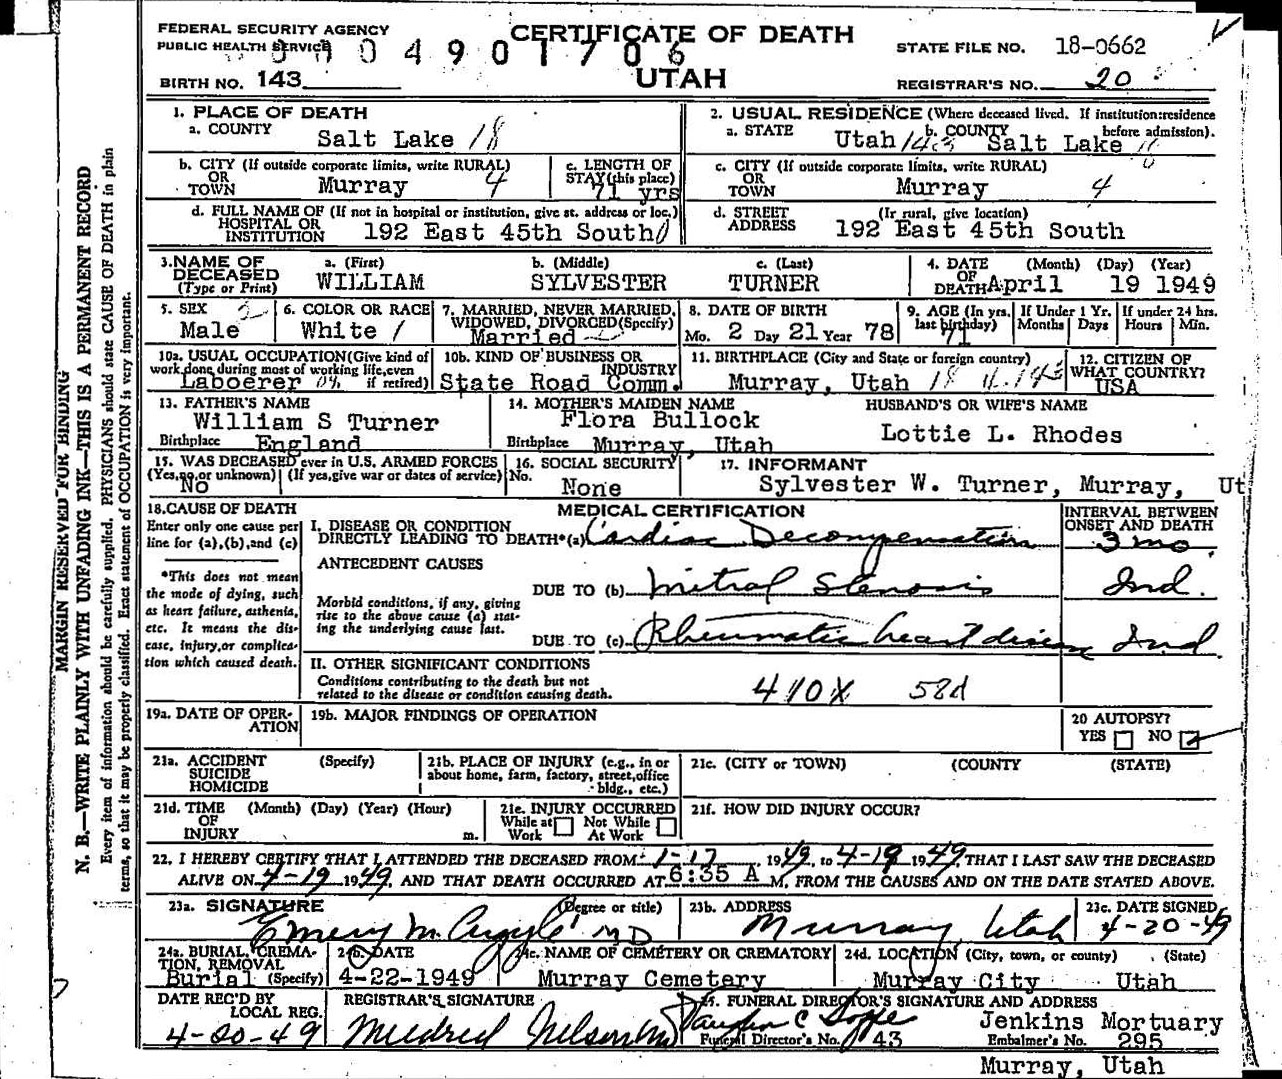 FEDERAL SECURITY AGENCY
PUBLIC HEALTH SERVICE
BIRTH NO. 143
CERTIFICATE OF DEATH
4 9 0 1 7 0 6
UTAH
STATE FILE NO. 18-0662
REGISTRAR'S NO. 20
1. PLACE OF DEATH
a. COUNTY
Salt Lake 18
2. USUAL RESIDENCE (Where deceased lived. If institution:residence
before admission).
a. STATE Utah 143 b. COUNTY Salt Lake
b. CITY (If outside corporate limits, write RURAL)
OR
TOWN Murray 4
c. LENGTH OF
STAY(this place)
71 yrs
c. CITY (If outside corporate limits, write RURAL)
OR
TOWN Murray 4
d. FULL NAME OF (If not in hospital or institution, give st. address or loc.)
HOSPITAL OR
INSTITUTION 192 East 45th South
d. STREET (If rural, give location)
ADDRESS 192 East 45th South
3. NAME OF
DECEASED
(Type or Print)
a. (First)
WILLIAM
b. (Middle)
SYLVESTER
c. (Last)
TURNER
4. DATE (Month) (Day) (Year)
OF
DEATH April 19 1949
5. SEX 2
Male
6. COLOR OR RACE
White 1
7. MARRIED, NEVER MARRIED,
WIDOWED, DIVORCED(Specify)
Married
8. DATE OF BIRTH
Mo. 2 Day 21 Year 78
9. AGE (In yrs.
last birthday)
71
If Under 1 Yr.
Months Days
If under 24 hrs.
Hours Min.
10a. USUAL OCCUPATION(Give kind of
work done, during most of working life, even
if retired)
Laboerer
10b. KIND OF BUSINESS OR
INDUSTRY
State Road Comm.
11. BIRTHPLACE (City and State or foreign country)
Murray, Utah 18
12. CITIZEN OF
WHAT COUNTRY?
USA
13. FATHER'S NAME
William S Turner
Birthplace England
14. MOTHER'S MAIDEN NAME
Flora Bullock
Birthplace Murray, Utah
HUSBAND'S OR WIFE'S NAME
Lottie L. Rhodes
15. WAS DECEASED ever in U.S. ARMED FORCES
(Yes,no,or unknown) (If yes,give war or dates of service)
No
16. SOCIAL SECURITY
No.
None
17. INFORMANT
Sylvester W. Turner, Murray, Ut
18.CAUSE OF DEATH
Enter only one cause per
line for (a),(b),and (c)
*This does not mean
the mode of dying, such
as heart failure, asthenia,
etc. It means the dis-
ease, injury,or complica-
tion which caused death.
MEDICAL CERTIFICATION
INTERVAL BETWEEN
ONSET AND DEATH
I. DISEASE OR CONDITION
DIRECTLY LEADING TO DEATH*(a) Cardiac Decompensation 3 mo.
ANTECEDENT CAUSES
Morbid conditions, if any, giving
rise to the above cause (a) stat-
ing the underlying cause last.
DUE TO (b) Mitral Stenosis Ind.
DUE TO (c) Rheumatic heart disease Ind.
II. OTHER SIGNIFICANT CONDITIONS
Conditions contributing to the death but not
related to the disease or condition causing death.
410X 58d
19a. DATE OF OPER-
ATION
19b. MAJOR FINDINGS OF OPERATION
20 AUTOPSY?
YES NO
21a. ACCIDENT (Specify)
SUICIDE
HOMICIDE
21b. PLACE OF INJURY (e.g., in or
about home, farm, factory, street,office
bldg., etc.)
21c. (CITY or TOWN) (COUNTY) (STATE)
21d. TIME (Month) (Day) (Year) (Hour)
OF
INJURY m.
21e. INJURY OCCURRED
While at Not While
Work At Work
21f. HOW DID INJURY OCCUR?
22. I HEREBY CERTIFY THAT I ATTENDED THE DECEASED FROM 1-17, 1949, to 4-19 1949, THAT I LAST SAW THE DECEASED
ALIVE ON 4-19 1949, AND THAT DEATH OCCURRED AT 6:35 A M, FROM THE CAUSES AND ON THE DATE STATED ABOVE.
23a. SIGNATURE (Degree or title)
Emery M. Argyle MD
23b. ADDRESS
Murray Utah
23c. DATE SIGNED
4-20-49
24a. BURIAL, CREMA-
TION, REMOVAL
Burial (Specify)
24b. DATE
4-22-1949
24c. NAME OF CEMETERY OR CREMATORY
Murray Cemetery
24d. LOCATION (City, town, or county) (State)
Murray City Utah
DATE REC'D BY
LOCAL REG.
4-20-49
REGISTRAR'S SIGNATURE
Mildred Nelson
25. FUNERAL DIRECTOR'S SIGNATURE AND ADDRESS
Jenkins Mortuary
Funeral Director's No. 43 Embalmer's No. 295
Murray, Utah
MARGIN RESERVED FOR BINDING
N. B.—WRITE PLAINLY WITH UNFADING INK—THIS IS A PERMANENT RECORD
Every item of information should be carefully supplied. PHYSICIANS should state CAUSE OF DEATH in plain
terms, so that it may be properly classified. Exact statement of OCCUPATION is very important.